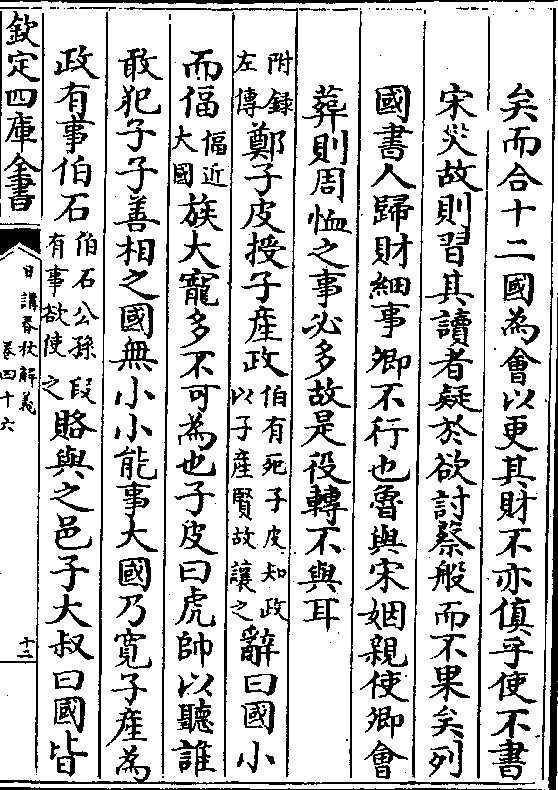 矣而合十二國為會以更其財不亦傎乎使不書
宋災故則習其讀者疑於欲討蔡般而不果矣列
國書人歸財細事卿不行也魯與宋姻親使卿會
葬則周恤之事必多故是役轉不與耳
附録左傳鄭子皮授子產政伯有死子皮知政以子產賢故讓之辭曰國小
而偪偪近大國族大寵多不可為也子皮曰虎帥以聽誰
敢犯子子善相之國無小小能事大國乃寛子產為
政有事伯石伯石公孫段有事欲使之賂與之邑子大叔曰國皆
欽定四庫全書
日講春秋解義
卷四十六
十二